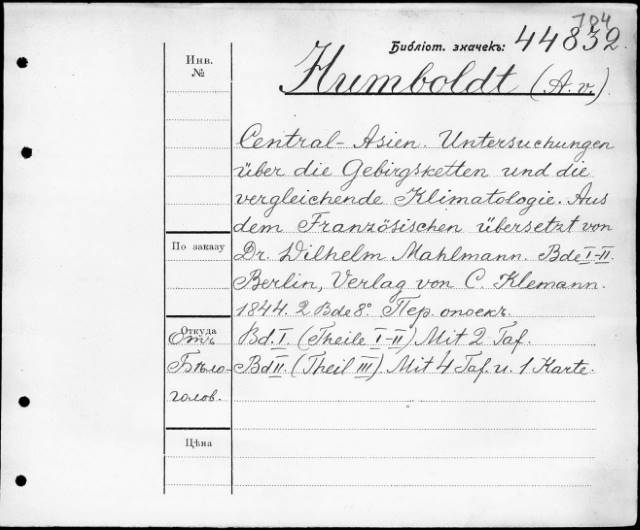 704
Библіот. значекъ: 44832.
Инв. №
Humboldt (A. v.)
Central-Asien. Untersuchungen
über die Gebirgsketten und die
vergleichende Klimatologie. Aus
dem Französischen übersetzt von
По заказу
Dr. Wilhelm Mahlmann. Bde I-II.
Berlin, Verlag von C. Klemann.
1844. 2 Bde 8°. Пер. опоекъ.
Откуда
Отъ
Бѣло-
голов.
Bd. I. (Theile I-II) Mit 2 Taf.
Bd II. (Theil III). Mit 4 Taf. u. 1 Karte.
Цѣна